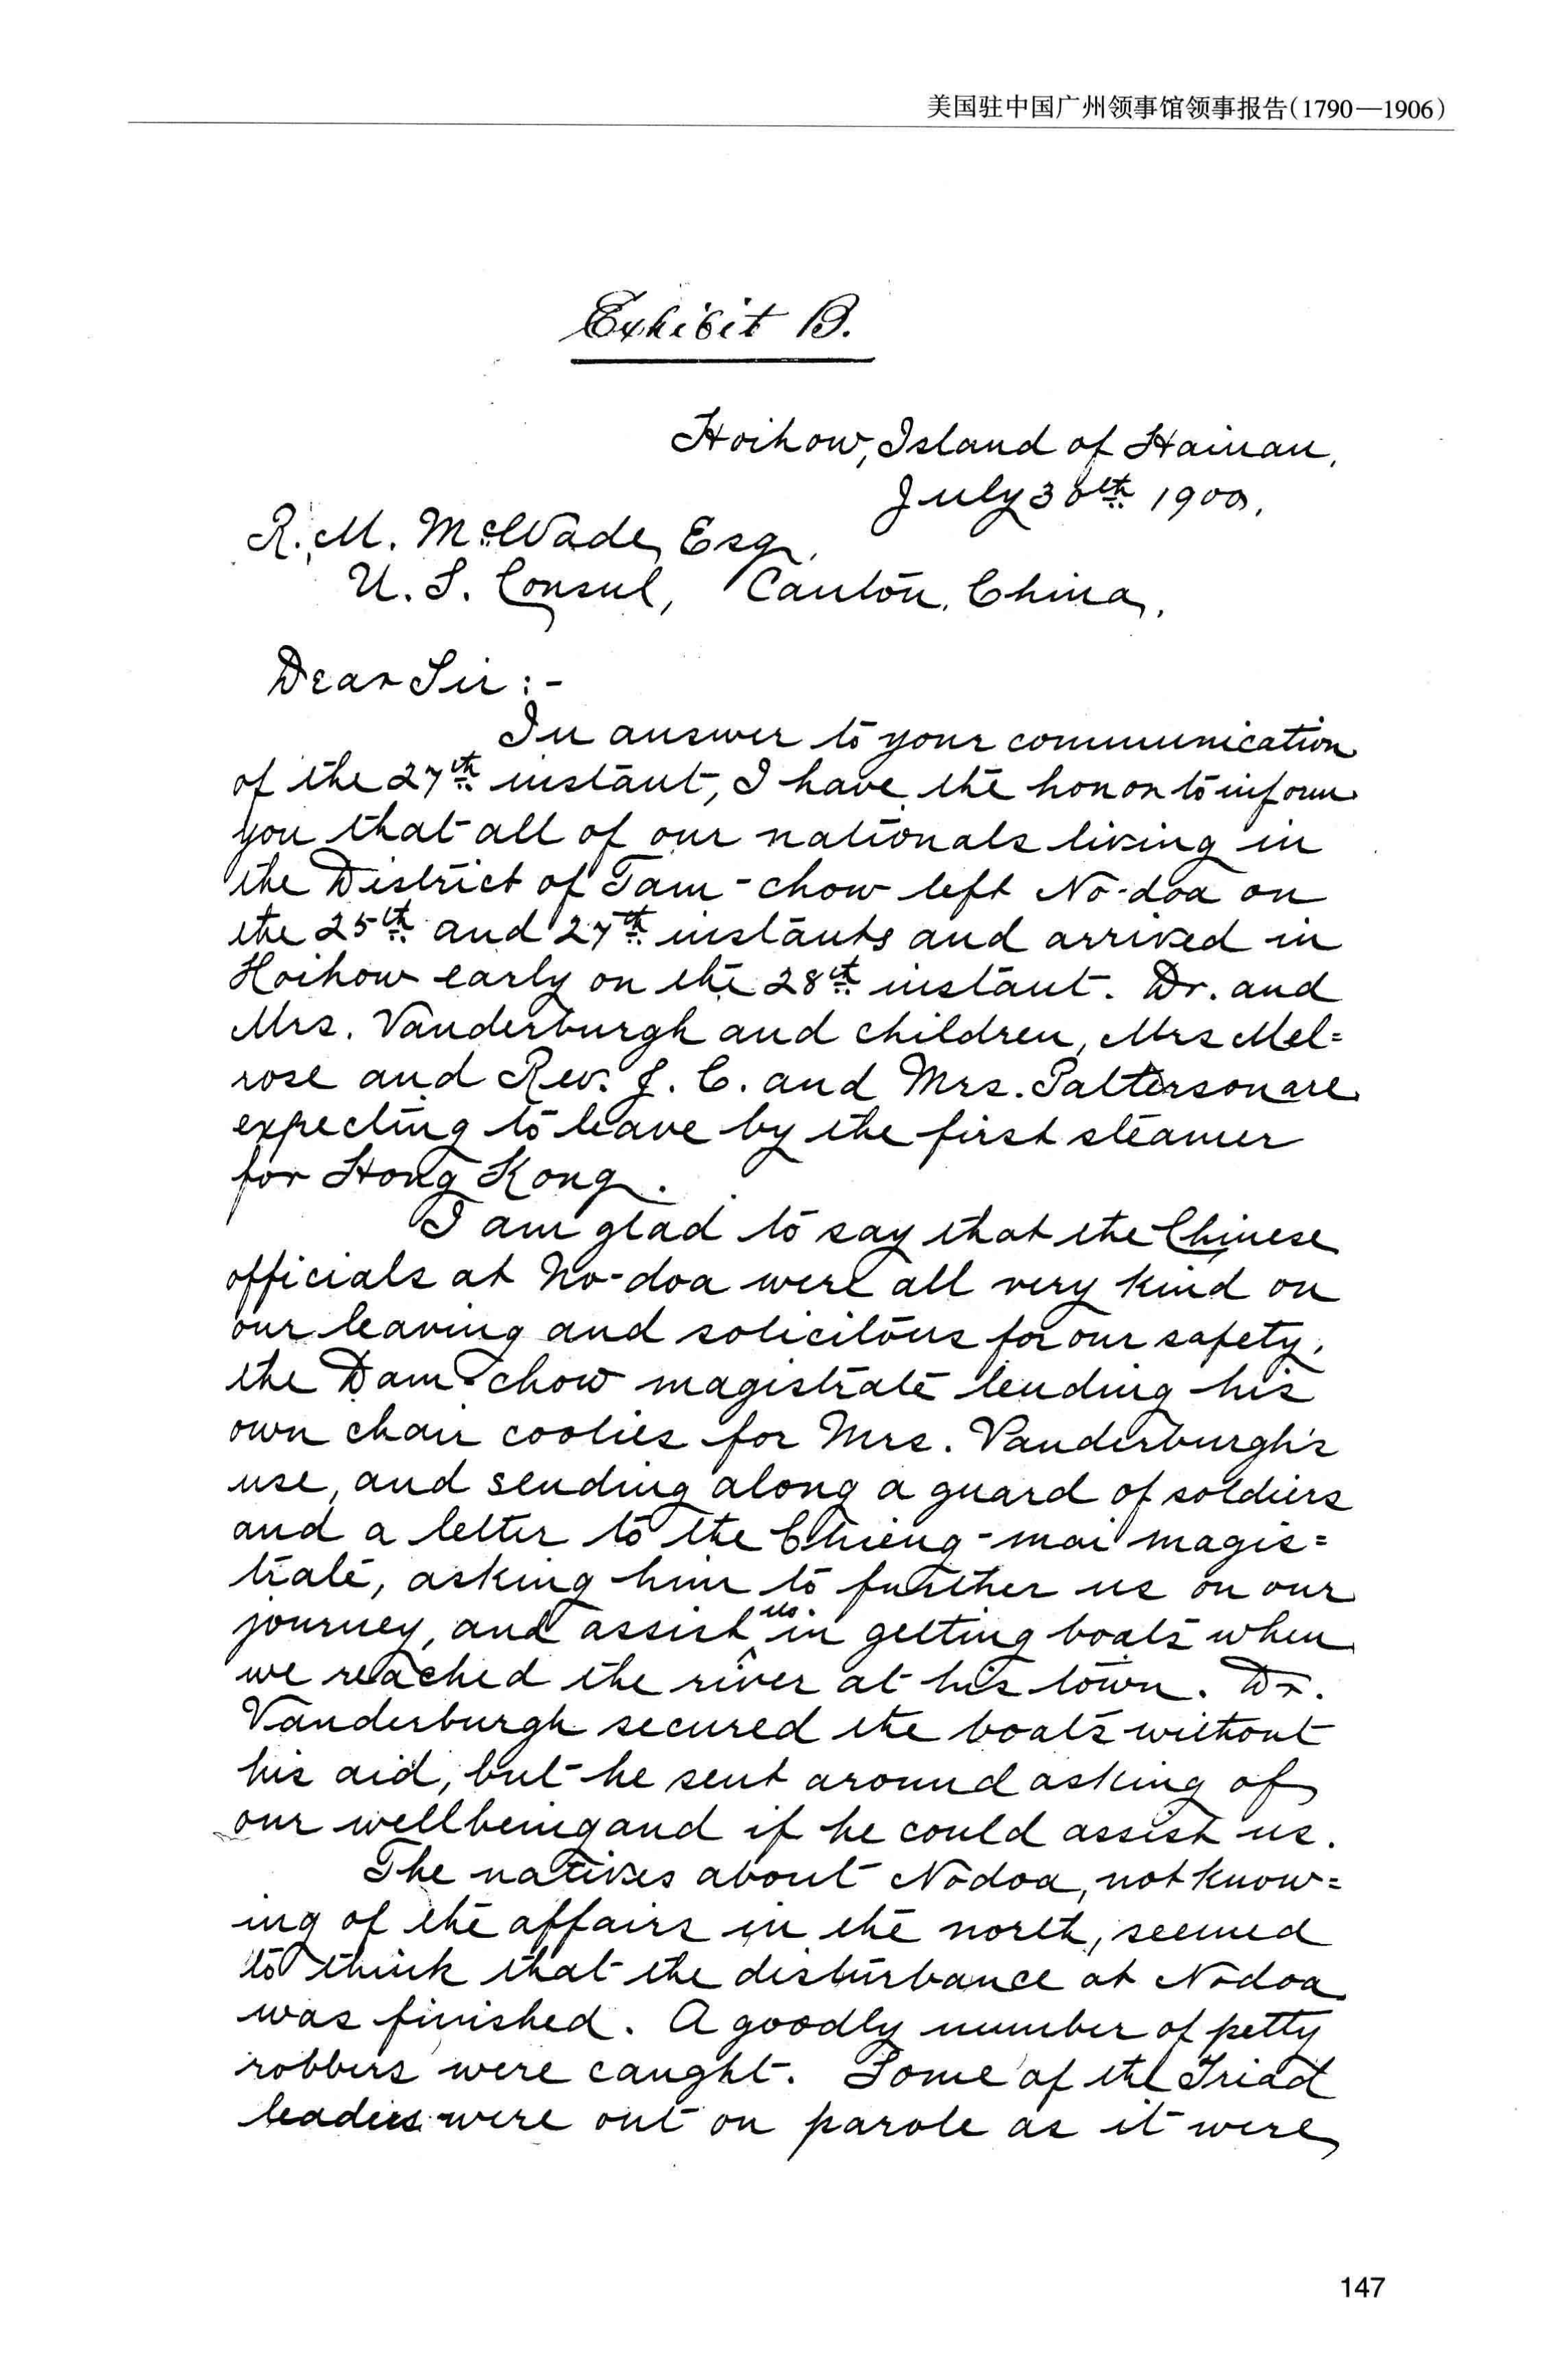 美国驻中国广州领事馆领事报告(1790—1906)
Exhibit B.
Hoihow, Island of Hainan,
July 30th 1900,
R. M. McWade, Esq,
U. S. Consul, Canton, China,
Dear Sir:-
In answer to your communication
of the 27th instant, I have the honor to inform
you that all of our nationals living in
the District of Tam-chow left No-doa on
the 25th and 27th instants and arrived in
Hoihow early on the 28th instant. Dr. and
Mrs. Vanderburgh and children, Mrs Mel=
rose and Rev. J. C. and Mrs. Patterson are
expecting to leave by the first steamer
for Hong Kong.
I am glad to say that the Chinese
officials at No-doa were all very kind on
our leaving and solicitous for our safety,
the Dam-chow magistrate lending his
own chair coolies for Mrs. Vanderburgh's
use, and sending along a guard of soldiers
and a letter to the Chieng-mai magis=
trate, asking him to further us on our
journey, and assist us in getting boats when
we reached the river at his town. Dr.
Vanderburgh secured the boats without
his aid, but he sent around asking of
our wellbeing and if he could assist us.
The natives about Nodoa, not know=
ing of the affairs in the north, seemed
to think that the disturbance at Nodoa
was finished. A goodly number of petty
robbers were caught. Some of the Triad
leaders were out on parole as it were,
147